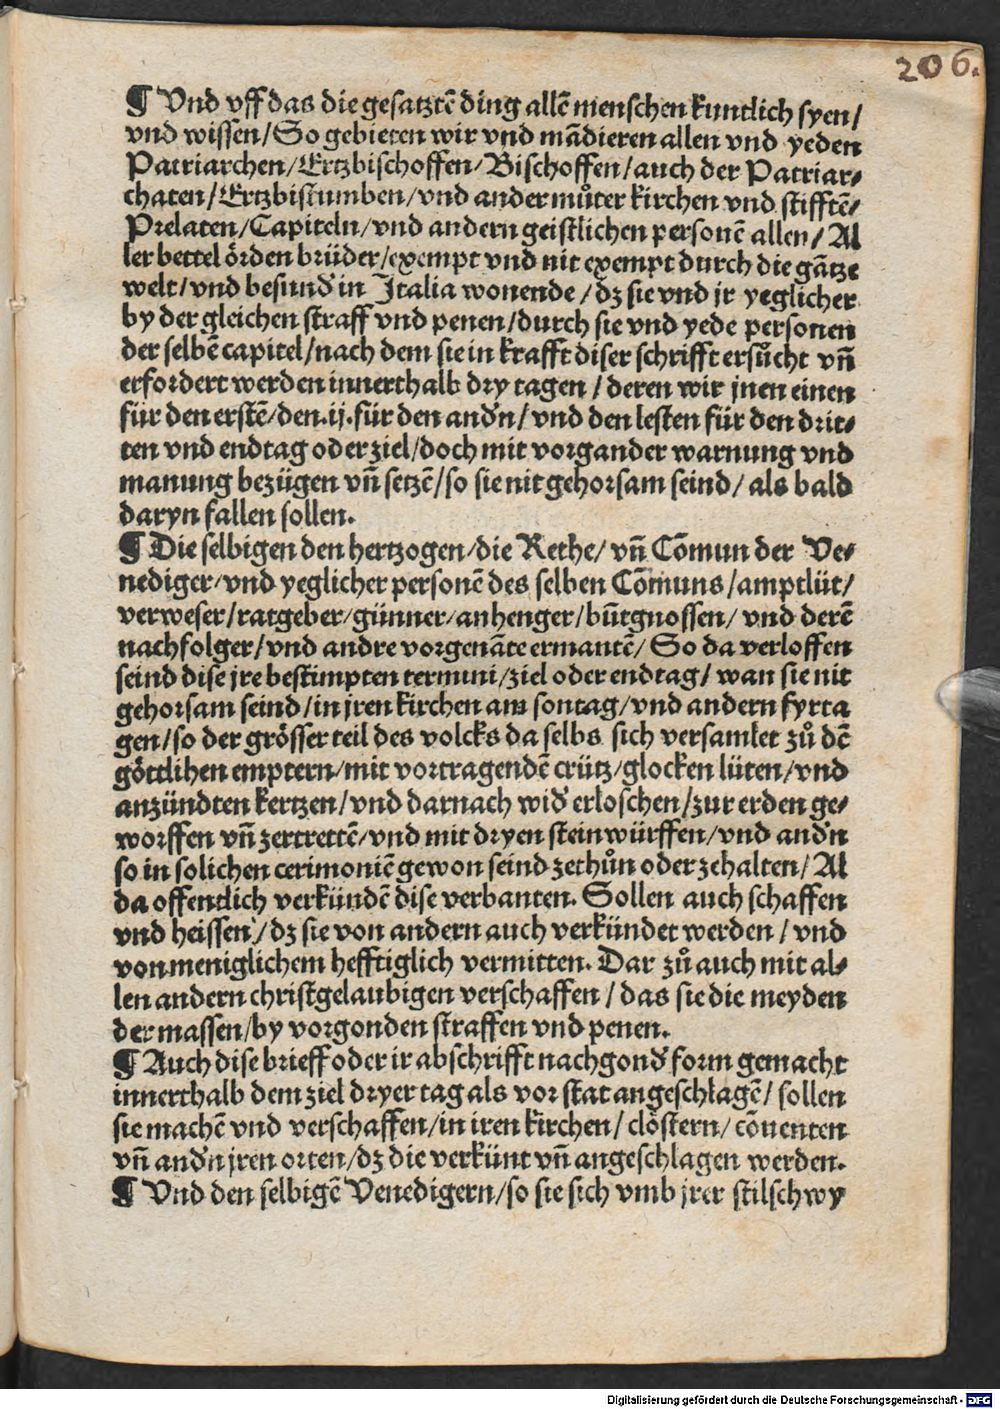 206.
¶ Vnd vff das die gesatztē ding allē menschen kuntlich syen/
vnd wissen/So gebieten wir vnd mādieren allen vnd yeden
Patriarchen/Ertzbischoffen/Bischoffen/auch der Patriar⸗
chaten/Ertzbistumben/vnd ander můter kirchen vnd stifftē⸗
Prelaten/Capiteln/vnd andern geistlichen personē allen/Al
ler bettel örden brüder/exempt vnd nit exempt durch die gātze
welt/vnd besund̓ in Italia wonende/dz sie vnd jr yeglicher
by der gleichen straff vnd penen/durch sie vnd yede personen
der selbē capitel/nach dem sie in krafft diser schrifft ersůcht vn̄
erfordert werden innerthalb dry tagen/deren wir jnen einen
für den erstē/den.ij.für den and̓n/vnd den lesten für den drit⸗
ten vnd endtag oder ziel/doch mit vorgander warnung vnd
manung bezügen vn̄ setzē/so sie nit gehorsam seind/als bald
daryn fallen sollen.
¶ Die selbigen den hertzogen/die Rethe/vn̄ Cōmun der Ve⸗
nediger/vnd yeglicher personē des selben Cōmuns/amptlüt/
verweser/ratgeber/günner/anhenger/bu̅tgnossen/vnd derē
nachfolger/vnd andre vorgenāte ermantē/So da verloffen
seind dise jre bestimpten termini/ziel oder endtag/wan sie nit
gehorsam seind/in jren kirchen am sontag/vnd andern fyrta
gen/so der grösser teil des volcks da selbs sich versamlet zů dē
göttlihen emptern/mit vortragendē crütz/glocken lüten/vnd
anzündten kertzen/vnd darnach wid̓ erloschen/zur erden ge⸗
worffen vn̄ zertrettē/vnd mit dryen steinwürffen/vnd and̓n
so in solichen cerimoniē gewon seind zethůn oder zehalten/Al
da offentlich verkündē dise verbanten. Sollen auch schaffen
vnd heissen/dz sie von andern auch verkündet werden/vnd
von meniglichem hefftiglich vermitten. Dar zů auch mit al⸗
len andern christgelaubigen verschaffen/das sie die meyden
der massen/by vorgonden straffen vnd penen.
¶ Auch dise brieff oder ir abschrifft nachgond̓ form gemacht
innerthalb dem ziel dryer tag als vor stat angeschlagē/sollen
sie machē vnd verschaffen/in iren kirchen/clöstern/cōuenten
vn̄ and̓n jren orten/dz die verkünt vn̄ angeschlagen werden.
¶ Vnd den selbigē Venedigern/so sie sich vmb jrer stilschwy
Digitalisierung gefördert durch die Deutsche Forschungsgemeinschaft - DFG